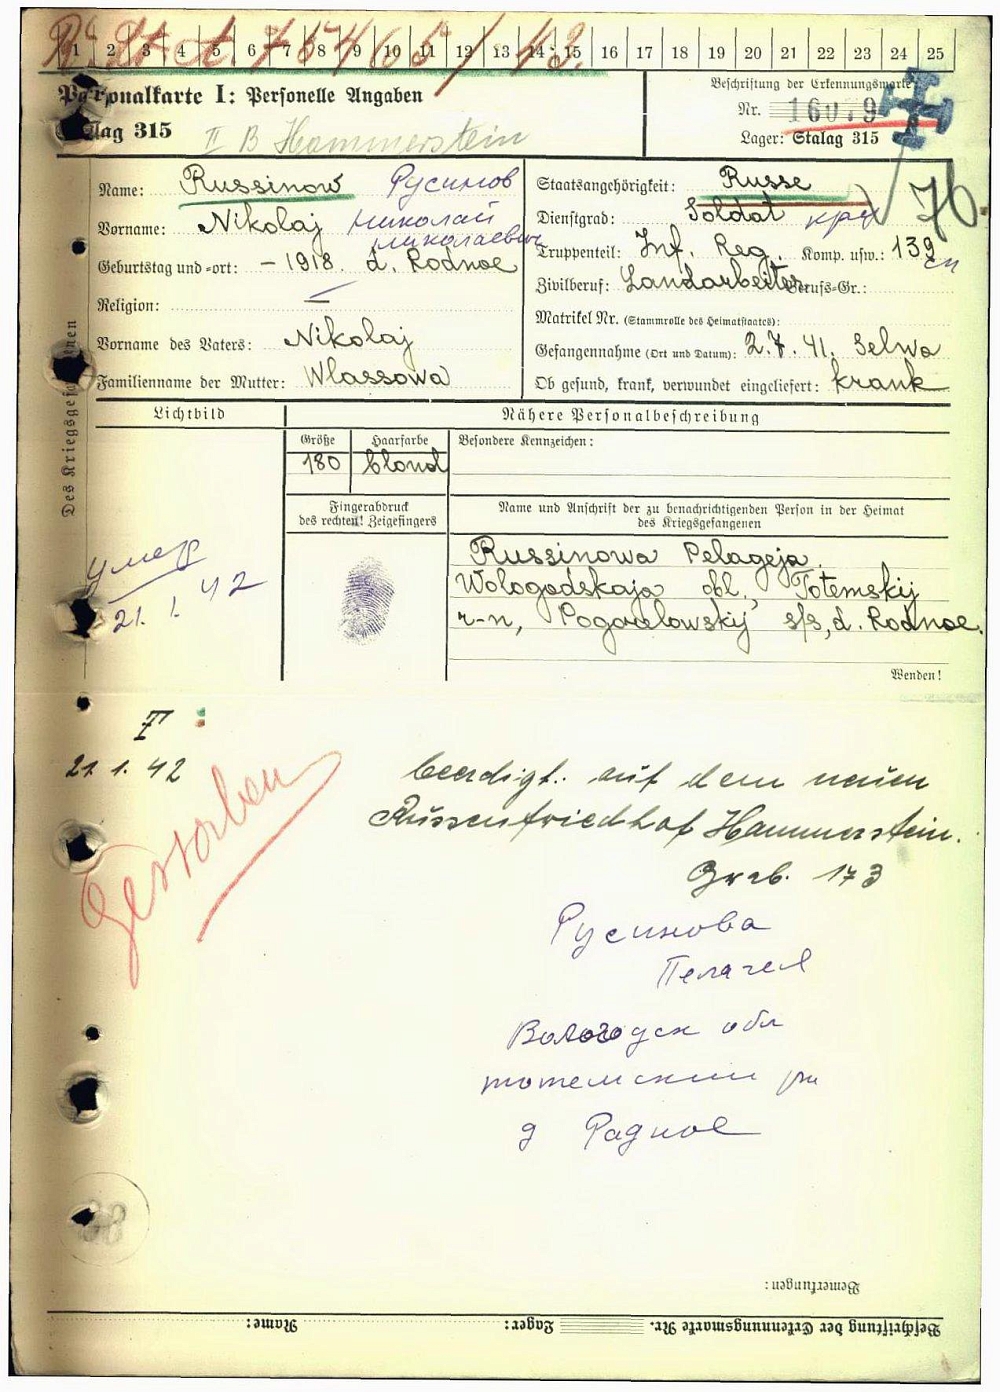 1 2 3 4 5 6 7 8 9 10 11 12 13 14 15 16 17 18 19 20 21 22 23 24 25
Personalkarte I: Personelle Angaben
Stalag 315
II B Hammerstein
Beschriftung der Erkennungsmarke
Nr. 16079
Lager: Stalag 315
76.
Des Kriegsgefangenen
Name: Russinow Русинов
Vorname: Nikolaj Николай
Николаевич
Geburtstag und -ort: – 1918. d. Rodnoe
Religion: —
Vorname des Vaters: Nikolaj
Familienname der Mutter: Wlassowa
Staatsangehörigkeit: Russe
Dienstgrad: Soldat кр
Truppenteil: Inf. Reg. Komp. usw.: 139
сп
Zivilberuf: Landarbeiter Berufs-Gr.:
Matrikel Nr. (Stammrolle des Heimatstaates):
Gefangennahme (Ort und Datum): 2.7.41. Selwa
Ob gesund, krank, verwundet eingeliefert: krank
Lichtbild
Nähere Personalbeschreibung
Größe Haarfarbe Besondere Kennzeichen:
180 blond
Fingerabdruck
des rechten! Zeigefingers
Name und Anschrift der zu benachrichtigenden Person in der Heimat
des Kriegsgefangenen
Russinowa Pelageja.
Wologodskaja obl., Totemskij
r-n, Pogorelowskij s/s, d. Rodnoe.
Wenden!
умер
21.1.42
T:
21. 1. 42
Gestorben
beerdigt. auf dem neuen
Russenfriedhof Hammerstein.
Grab. 173
Русинова
Пелагея
Вологодск обл
тотемский рн
д Радное
88
Bemerkungen:
Name: Lager: Beschriftung der Erkennungsmarke Nr.